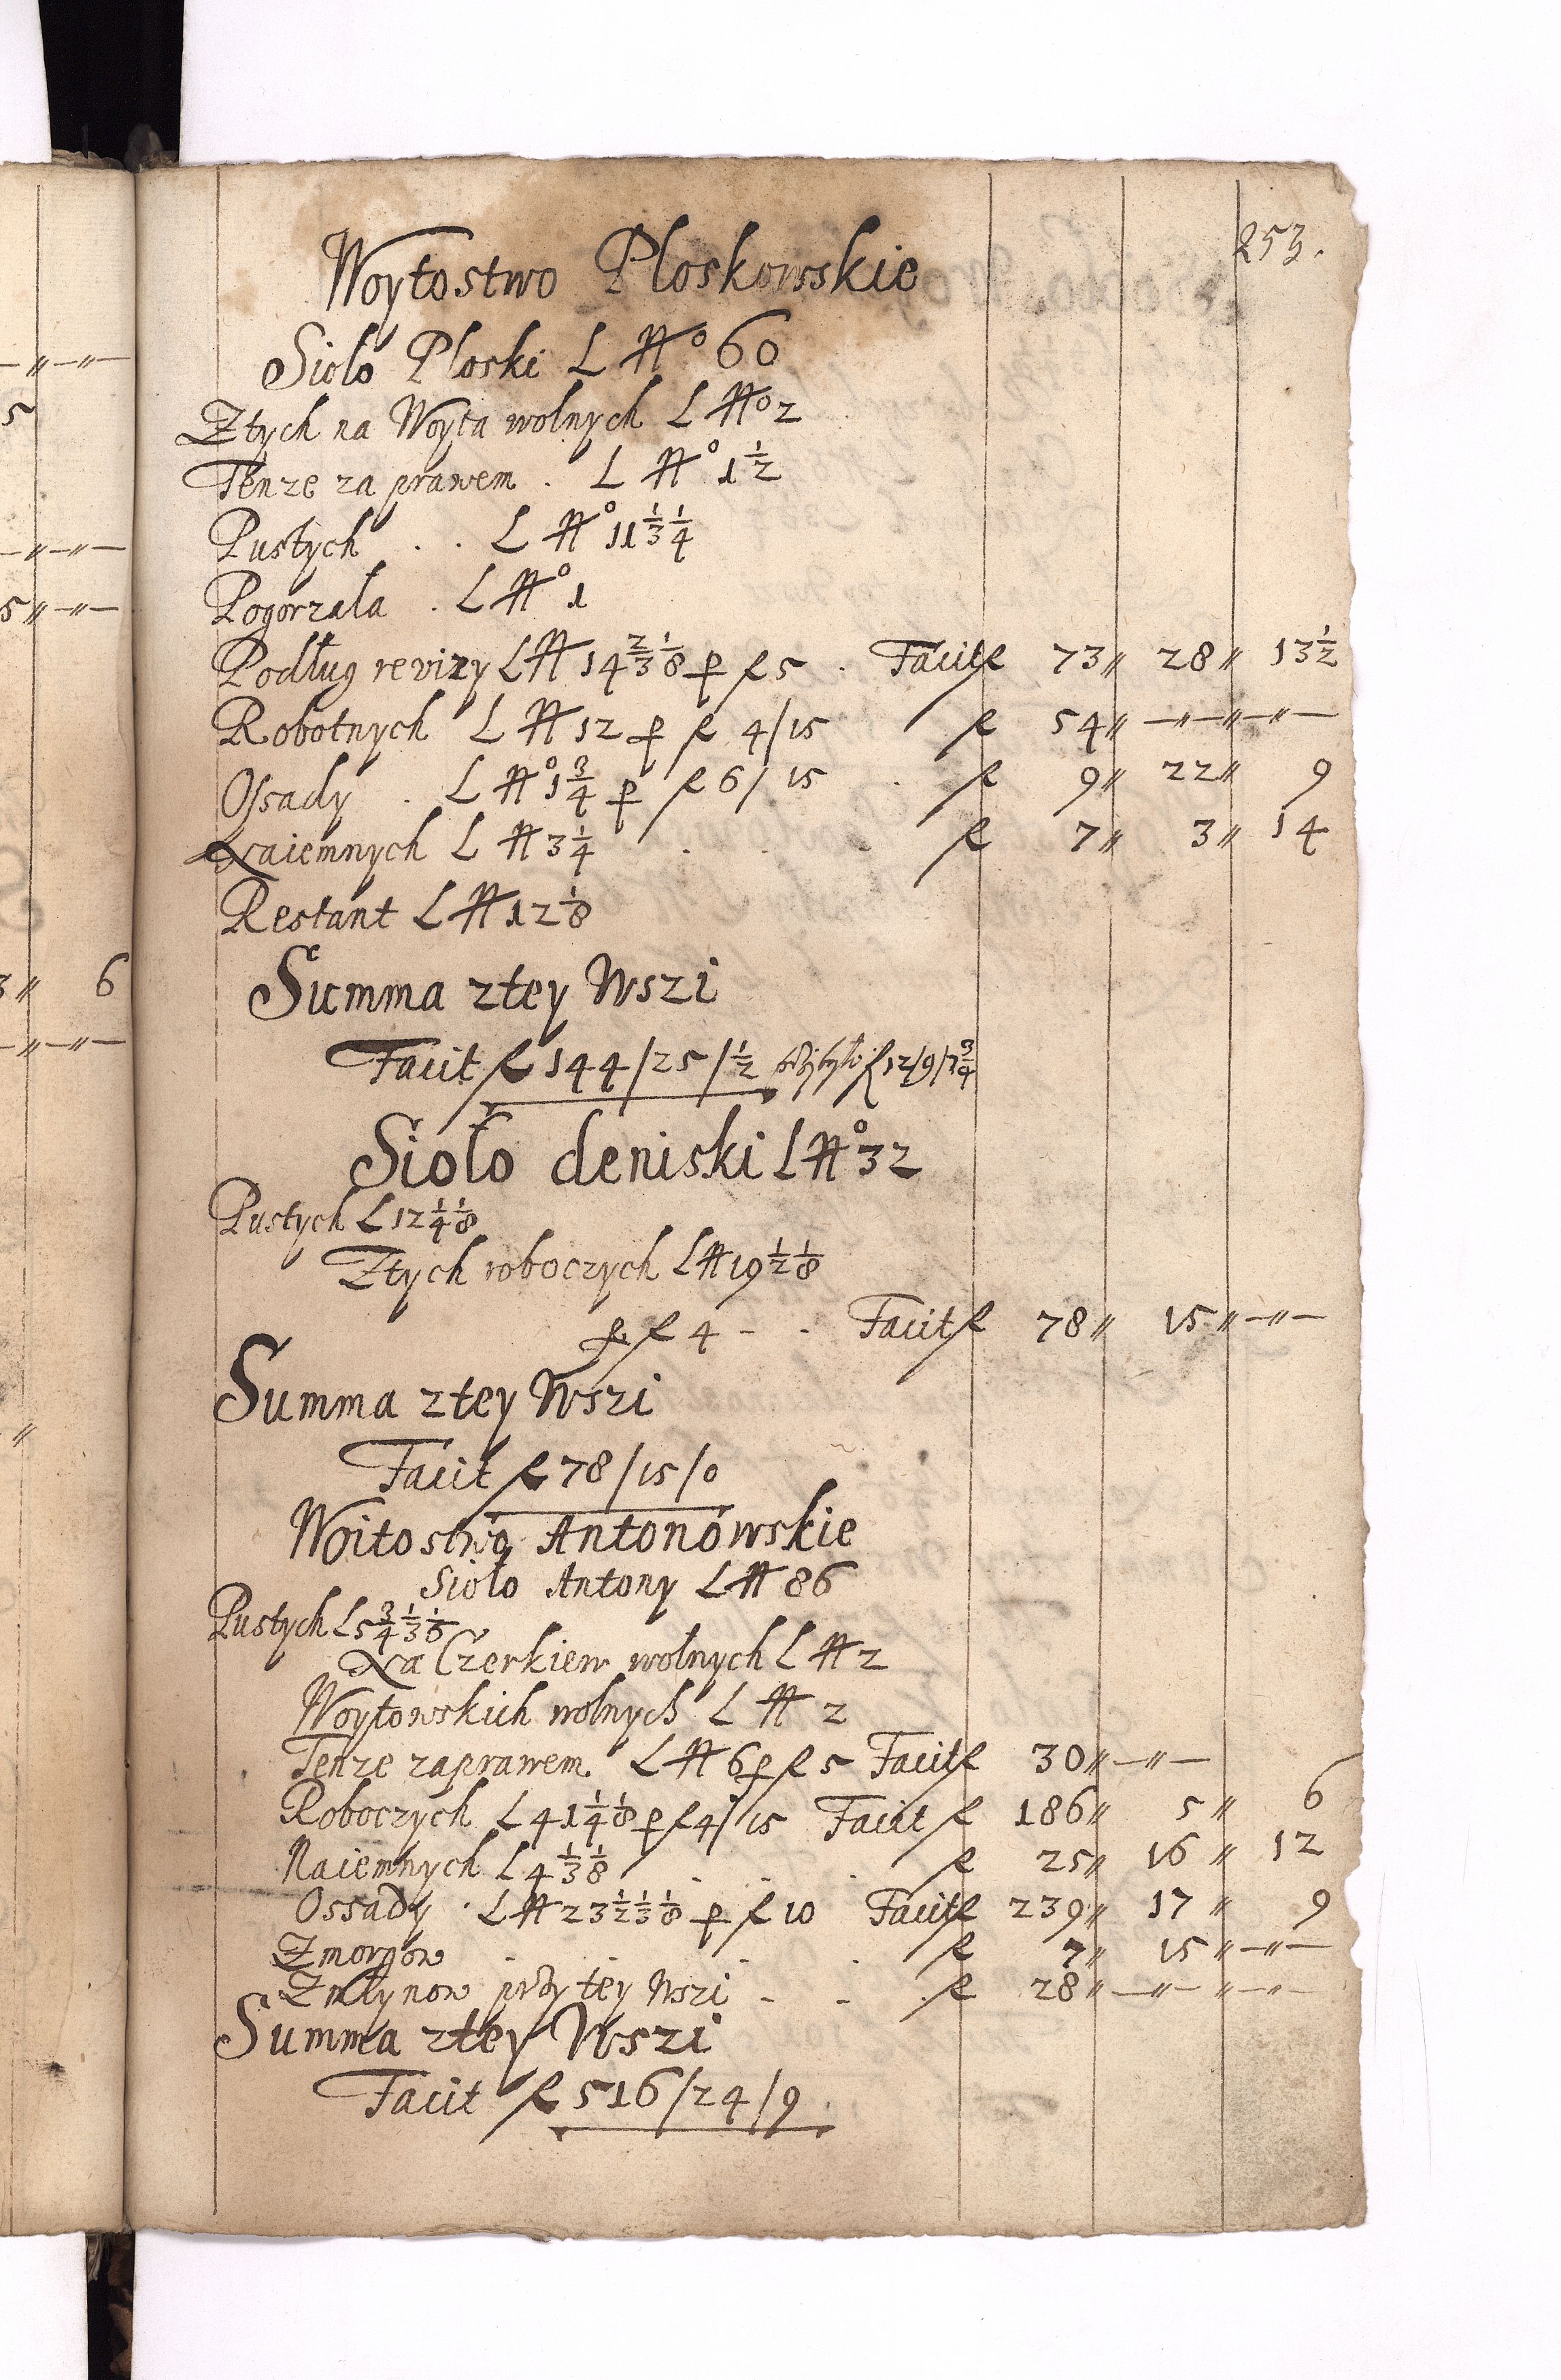 253.
Woytostwo Ploskowskie
Sioło Ploski L No 60
Ztych na Woyta wolnych L No 2
Tenze za prawem . L No 1 1/2
Pustych . . L No 11 1/3 1/4
Pogorzała . L No 1
Podług revizy L N 14 2/3 1/8 p fl 5 . Facit fl 73 // 28 // 13 1/2
Robotnych L N 12 p fl 4/15 fl 54 // — // — // —
Ossady . L No 1 3/4 p fl 6/15 . fl 9 // 22 // 9
Naiemnych L N 3 1/4 . . . fl 7 // 3 // 14
Restant L N 12 1/8
Summa ztey Wszi
Facit fl 144/25/ 1/2 fl 12/9/7 3/4
Sioło deniski L No 32
Pustych L 12 1/4 1/8
Ztych roboczych L N 19 1/2 1/8
p fl 4 - . Facit fl 78 // 15 // — // —
Summa ztey Wszi
Facit fl 78/15/0
Woitostwo Antonówskie
Sioło Antony L N 86
Pustych L 5 3/4 1/3 1/6
Na Czerkiew wolnych L N 2
Woytowskich wolnych L N 2
Tenze zaprawem. L N 6 p fl 5 Facit fl 30 // — // —
Roboczych L 41 1/4 1/8 p fl 4/15 Facit fl 186 // 5 // 6
Naiemnych L 4 1/3 1/8 . . . fl 25 // 16 // 12
Ossady . L N 23 1/2 1/3 1/8 p fl 10 Facit fl 239 // 17 // 9
Zmorgow . . . . fl 7 // 15 // — // —
Zmłynow przy tey Wszi - - . fl 28 // — // — // —
Summa ztey Wszi
Facit fl 516/24/9
5
5 // — // —
3 // 6